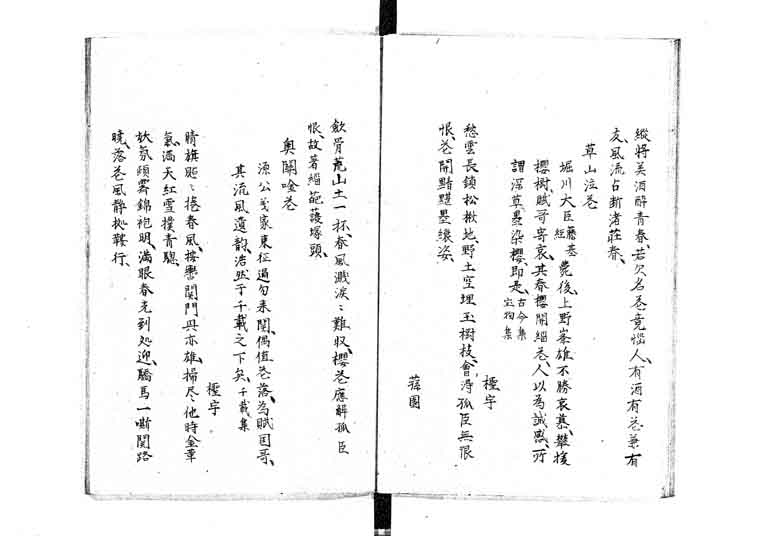 縱將美酒醉青春、若欠名花竟惱人、有酒有花兼有
友、風流占断渚莊春、
草山泣花
堀川大臣藤基経薨後、上野峯雄不勝哀慕、攀援
櫻樹、賦哥寄哀、其春櫻開緇花、人以為誠感、所
謂深草墨染櫻、即是、古今集宝物集
檉宇
愁雲長鎖松楸地、野土空埋玉樹枝、會得孤臣無限
恨、花開黯黮墨纕姿、
蓀園
斂骨荒山土一抔、春風濺涙々難収、櫻花應解孤臣
恨、故著緇葩護塚頭、
奥關唫花
源公義家東征過勿来関、偶値花落、為賦国哥、
其流風遺韵、浩然于千載之下矣、千載集
檉宇
晴旗
春風、按轡関門興亦雄、掃尽他時金革
氣、満天紅雪撲青驄、
妖氛頓霽錦袍明、満眼春光到処迎、驕馬一嘶関路
暁、落花風静拠鞍行、